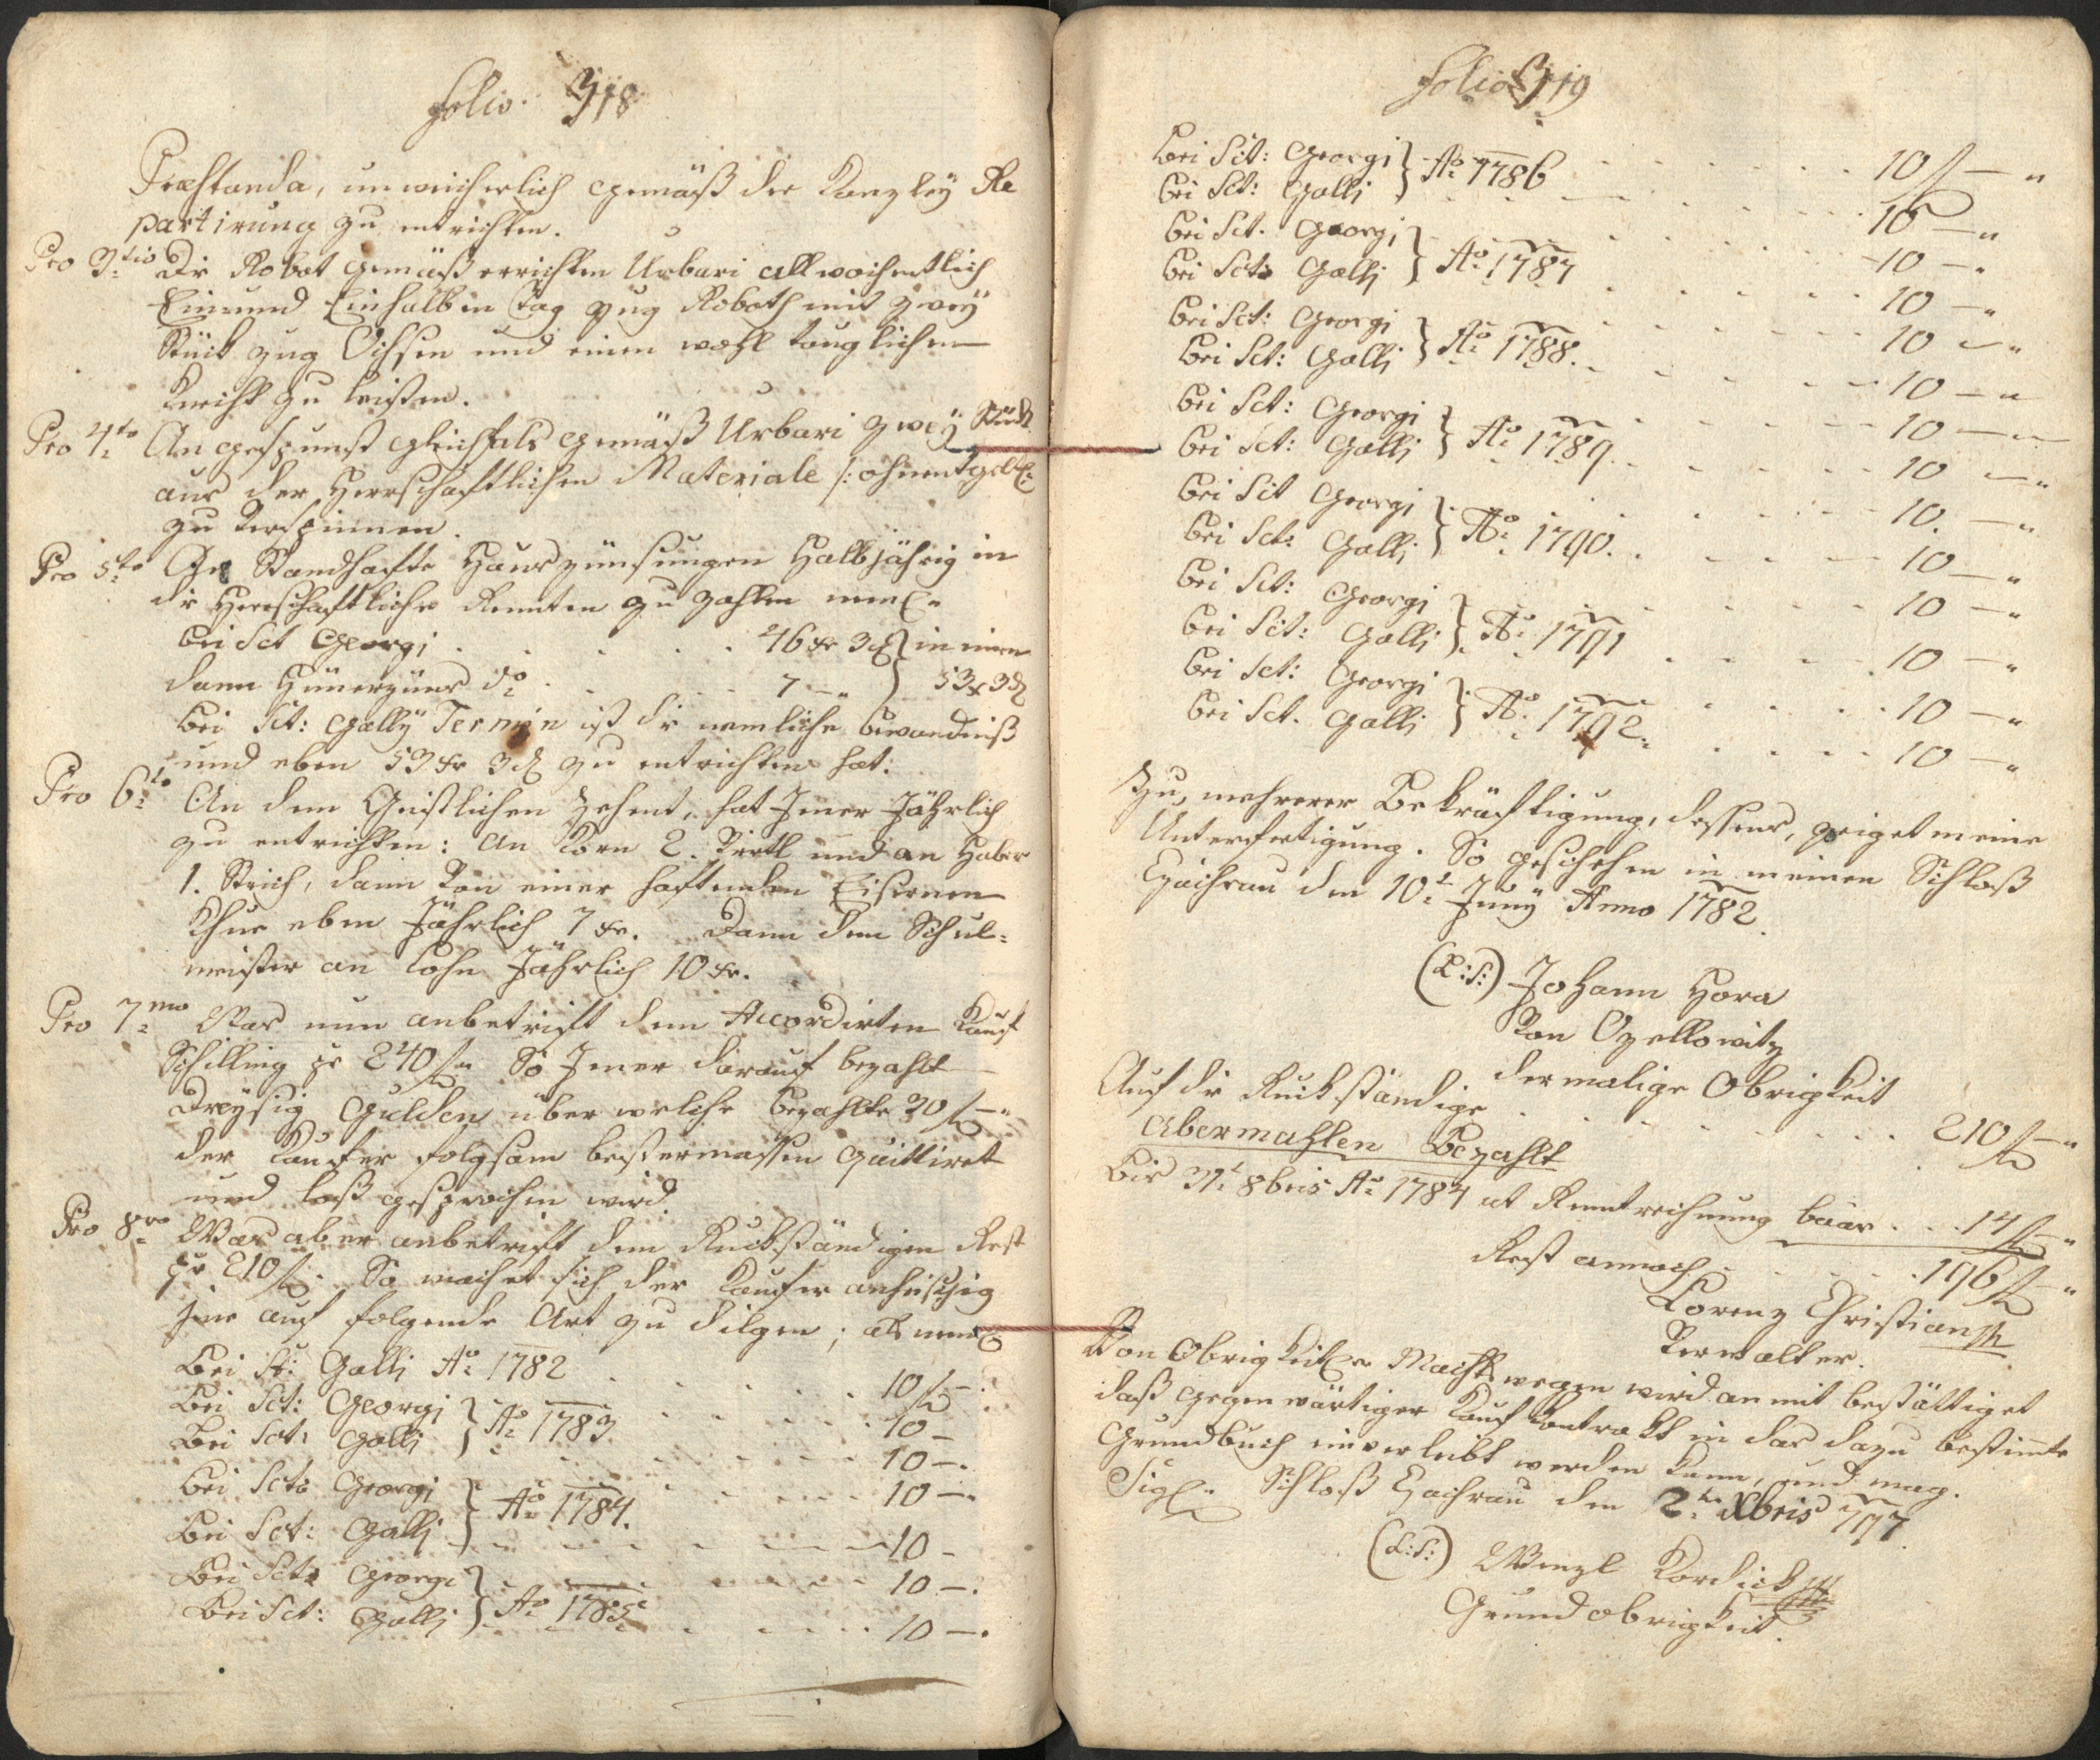 folio. 318
Præstanda, unweicherlich gemäß der Kanzley Re
partirung zu entrichten.
Pro 3tio Die Robot gemäß errichten Urbari allwochentlich
Ein und Einhalben Tag zug Roboth mit zweÿ
Stück zug Ochsen und einen wohl tauglichen
Knecht zu leisten.
Pro 4to An gespunst gleichfals gemäß Urbari zweÿ Stück
aus der Herrschaftlichen Materiale /: ohnentgeltl:
zu Verspinnen.
Pro 5to An Standhafte Hauszünsungen Halbjährig in
die Herrschaftliche Rennten zu zahlen neml.
bei Sct Georgi . . . . . 46 xr 3 d } in einen
dann Hünerzüns do . . . . 7 — „ } 53 x 3 d
bei Sct: Gally Termin ist die nemliche bewandniß
und eben 53 xr 3 d zu entrichten hat:
Pro 6to An dem Geistlichen Zehent, hat Jener Jährlich
zu entrichten: An Korn 2. Viertl und an Haber
1. Strich, dann Von einer haftenden Eisernen
Khue eben Jährlich 7 xr. Dann dem Schul=
meister an Lohn Jährlich 10 xr.
Pro 7mo Was nun anbetrift dem Accordirten Kauf
Schilling pr 240 f „ So Jener darauf bezahlt
Dreÿsig Gulden über welche bezahlte 30 f — „
der Kaufer folgsam bestermassen quittiret
und loß gesprochen wird.
Pro 8vo Was aber anbetrift dem Ruckständigen Rest
pr 210 f. So machet sich der Kaufer anheischig
jene auf folgende Art zu dilgen; als neml
Bei St: Galli Ao 1782 . . . . . 10 f —
Bei Sct: Georgi } Ao 1783 . . . . . 10 —
Bei Sct: Galli } . . . . . 10 —.
Bei Sct: Georgi } Ao 1784. . . . . 10 —
Bei Sct: Galli } . . . . . 10 —
Bei Sct: Georgi } Ao 1785 . . . . . 10 —.
Bei Sct: Galli } . . . . . 10 —.
folio 319
bei Sct: Georgi } Ao 1786 . . . . . 10 f — „
bei Sct: Galli } . . . . . 10 — „
bei Sct. Georgi } Ao 1787 . . . . . 10 — „
bei Sct: Galli } . . . . . 10 — „
bei Sct: Georgi } Ao 1788. . . . . 10 — „
bei Sct: Galli } . . . . . 10 — „
bei Sct: Georgi } Ao 1789 . . . . . 10 — „
bei Sct: Galli } . . . . . 10 — „
bei Sct Georgi } Ao 1790. . . . . 10. — „
bei Sct: Galli } . . . . . 10 — „
bei Sct: Georgi } Ao 1791 . . . . . 10 — „
bei Sct: Galli } . . . . . 10 — „
bei Sct: Georgi } Ao 1792. . . . . 10 — „
bei Sct. Galli } . . . . . 10 — „
Zu mehrerer Bekräftigung, dessens, zeiget meine
Unterfertigung. So geschehen in meinen Schloß
Czachrau den 10t Junÿ Anno 1782.
(L:S:) Johann Hora
Von Ozellowitz
dermalige Obrigkeit
Auf die Ruckständige . . . . . 210 f — „
Abermahlen Bezahlt
Bis 31t 8bris Ao 1784 ut Renntrechnung baar . . . 14 f „
Rest annoch . . . . . 196 f — „
Lorenz Christian
Verwalter.
Von Obrigkeitl. Machtswegen wird anmit bestättiget
daß gegenwärtiger Kauf Kontrakt in das dazu bestimte
Grundbuch einverleibt werden kann, und mag.
Sigl. Schloß Czachrau den 2ten Xbris 797
(L:S:) Wenzl Kordick
Grundobrigkeit.